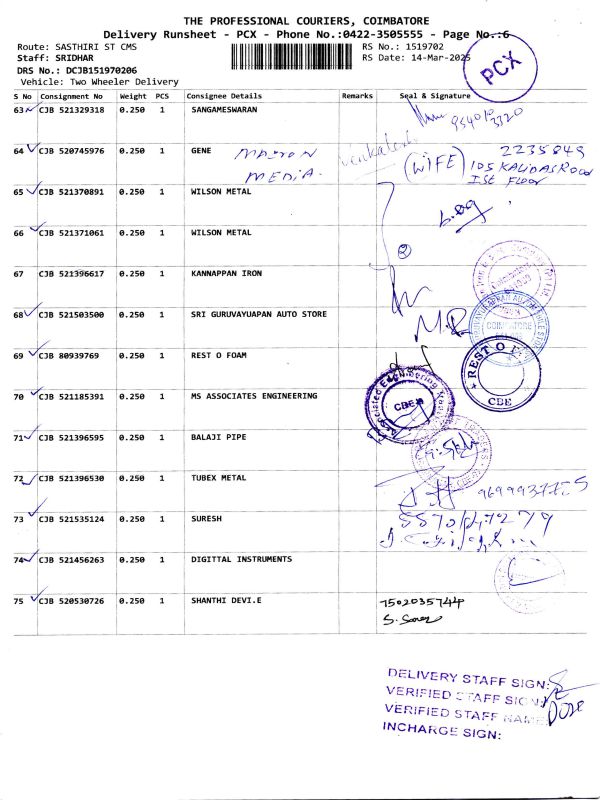 THE PROFESSIONAL COURIERS, COIMBATORE
Delivery Runsheet - PCX - Phone No.:0422-3505555 - Page No.:6
Route: SASTHIRI ST CMS RS No.: 1519702
Staff: SRIDHAR RS Date: 14-Mar-2025
DRS No.: DCJB151970206
Vehicle: Two Wheeler Delivery
PCX
S No Consignment No Weight PCS Consignee Details Remarks Seal & Signature
63 CJB 521329318 0.250 1 SANGAMESWARAN
64 CJB 520745976 0.250 1 GENE
MEDIA.
(WIFE) 2235849
105 KALIDAS ROAD
Ist FLOOR
65 CJB 521370891 0.250 1 WILSON METAL
66 CJB 521371061 0.250 1 WILSON METAL
②
67 CJB 521396617 0.250 1 KANNAPPAN IRON
68 CJB 521503500 0.250 1 SRI GURUVAYUAPAN AUTO STORE
COIMBATORE
69 CJB 80939769 0.250 1 REST O FOAM
REST O
CBE
70 CJB 521185391 0.250 1 MS ASSOCIATES ENGINEERING
CBE
71 CJB 521396595 0.250 1 BALAJI PIPE
72 CJB 521396530 0.250 1 TUBEX METAL
73 CJB 521535124 0.250 1 SURESH
74 CJB 521456263 0.250 1 DIGITTAL INSTRUMENTS
75 CJB 520530726 0.250 1 SHANTHI DEVI.E
DELIVERY STAFF SIGN:
VERIFIED STAFF SIGN:
VERIFIED STAFF NAME:
INCHARGE SIGN: